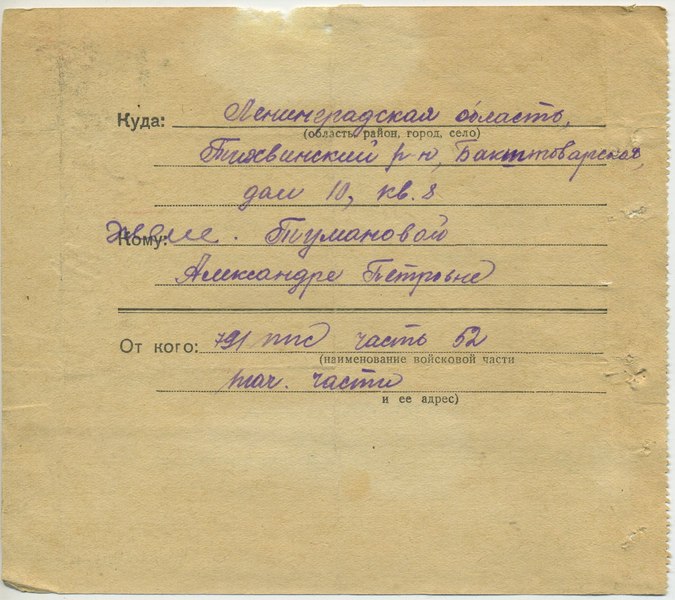 Куда: Ленинградская область,
(область, район, город, село)
Тихвинский р-н,
дом 10, кв. 8
Кому: Жене. Тумановой
Александре Петровне
От кого: 791 ппс часть 52
(наименование войсковой части
нач. части
и ее адрес)